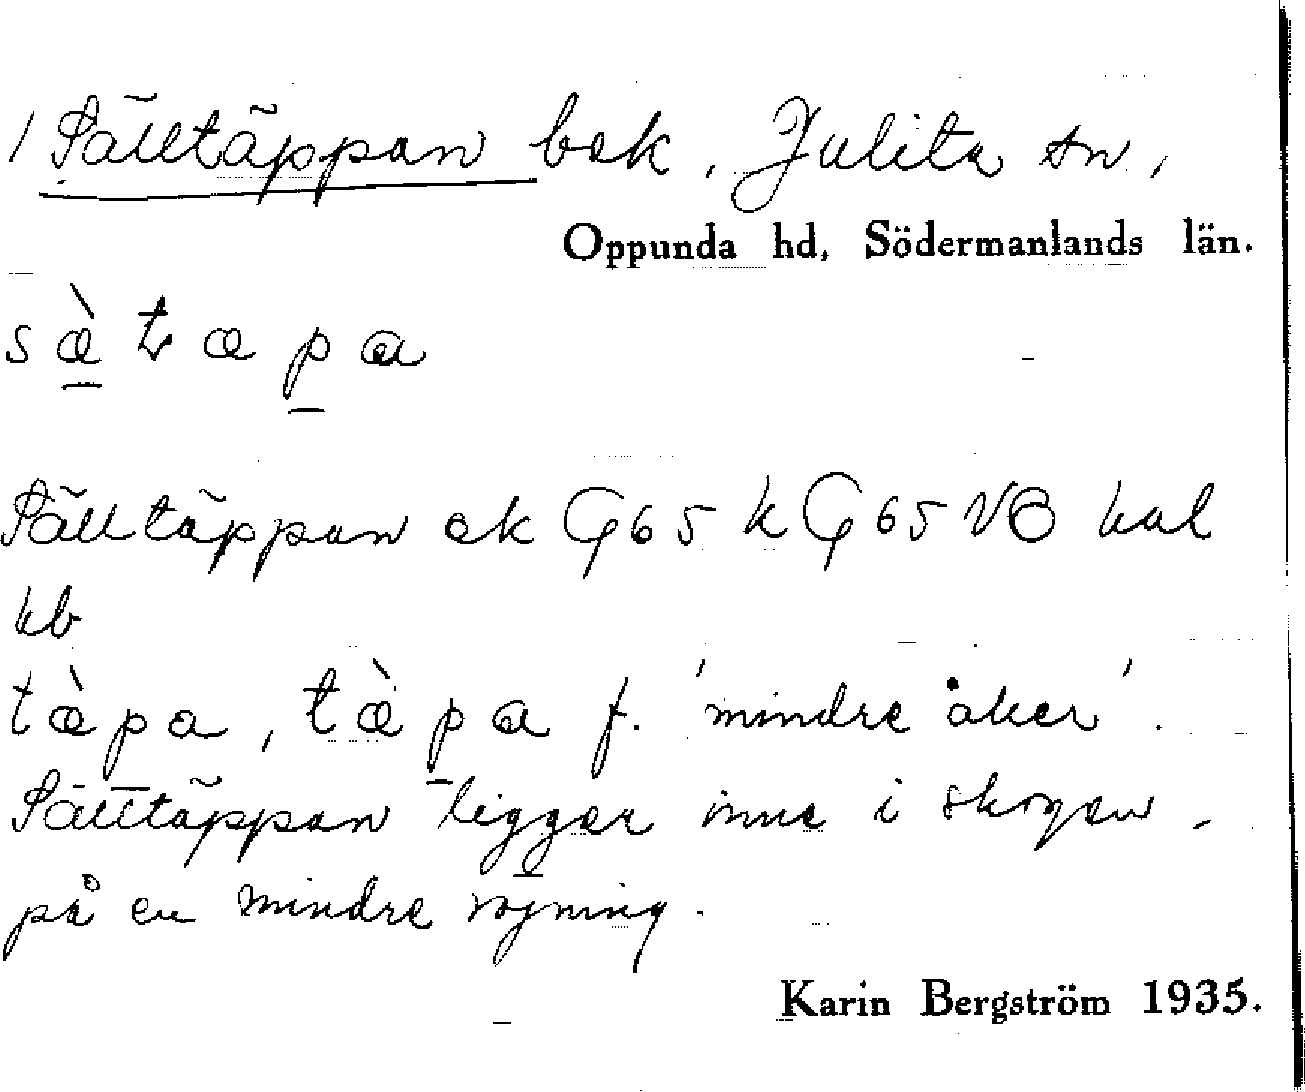 1 Sälltäppan bsk, Julita sn,
Oppunda hd, Södermanlands län.
sæ̀tæpa
Sälltäppan ek G 65 k G 65 VB kal
kb
tæ̀pa, tæ̀pa f. 'mindre åker'.
Sälltäppan ligger inne i skogen
på en mindre röjning.
Karin Bergström 1935.